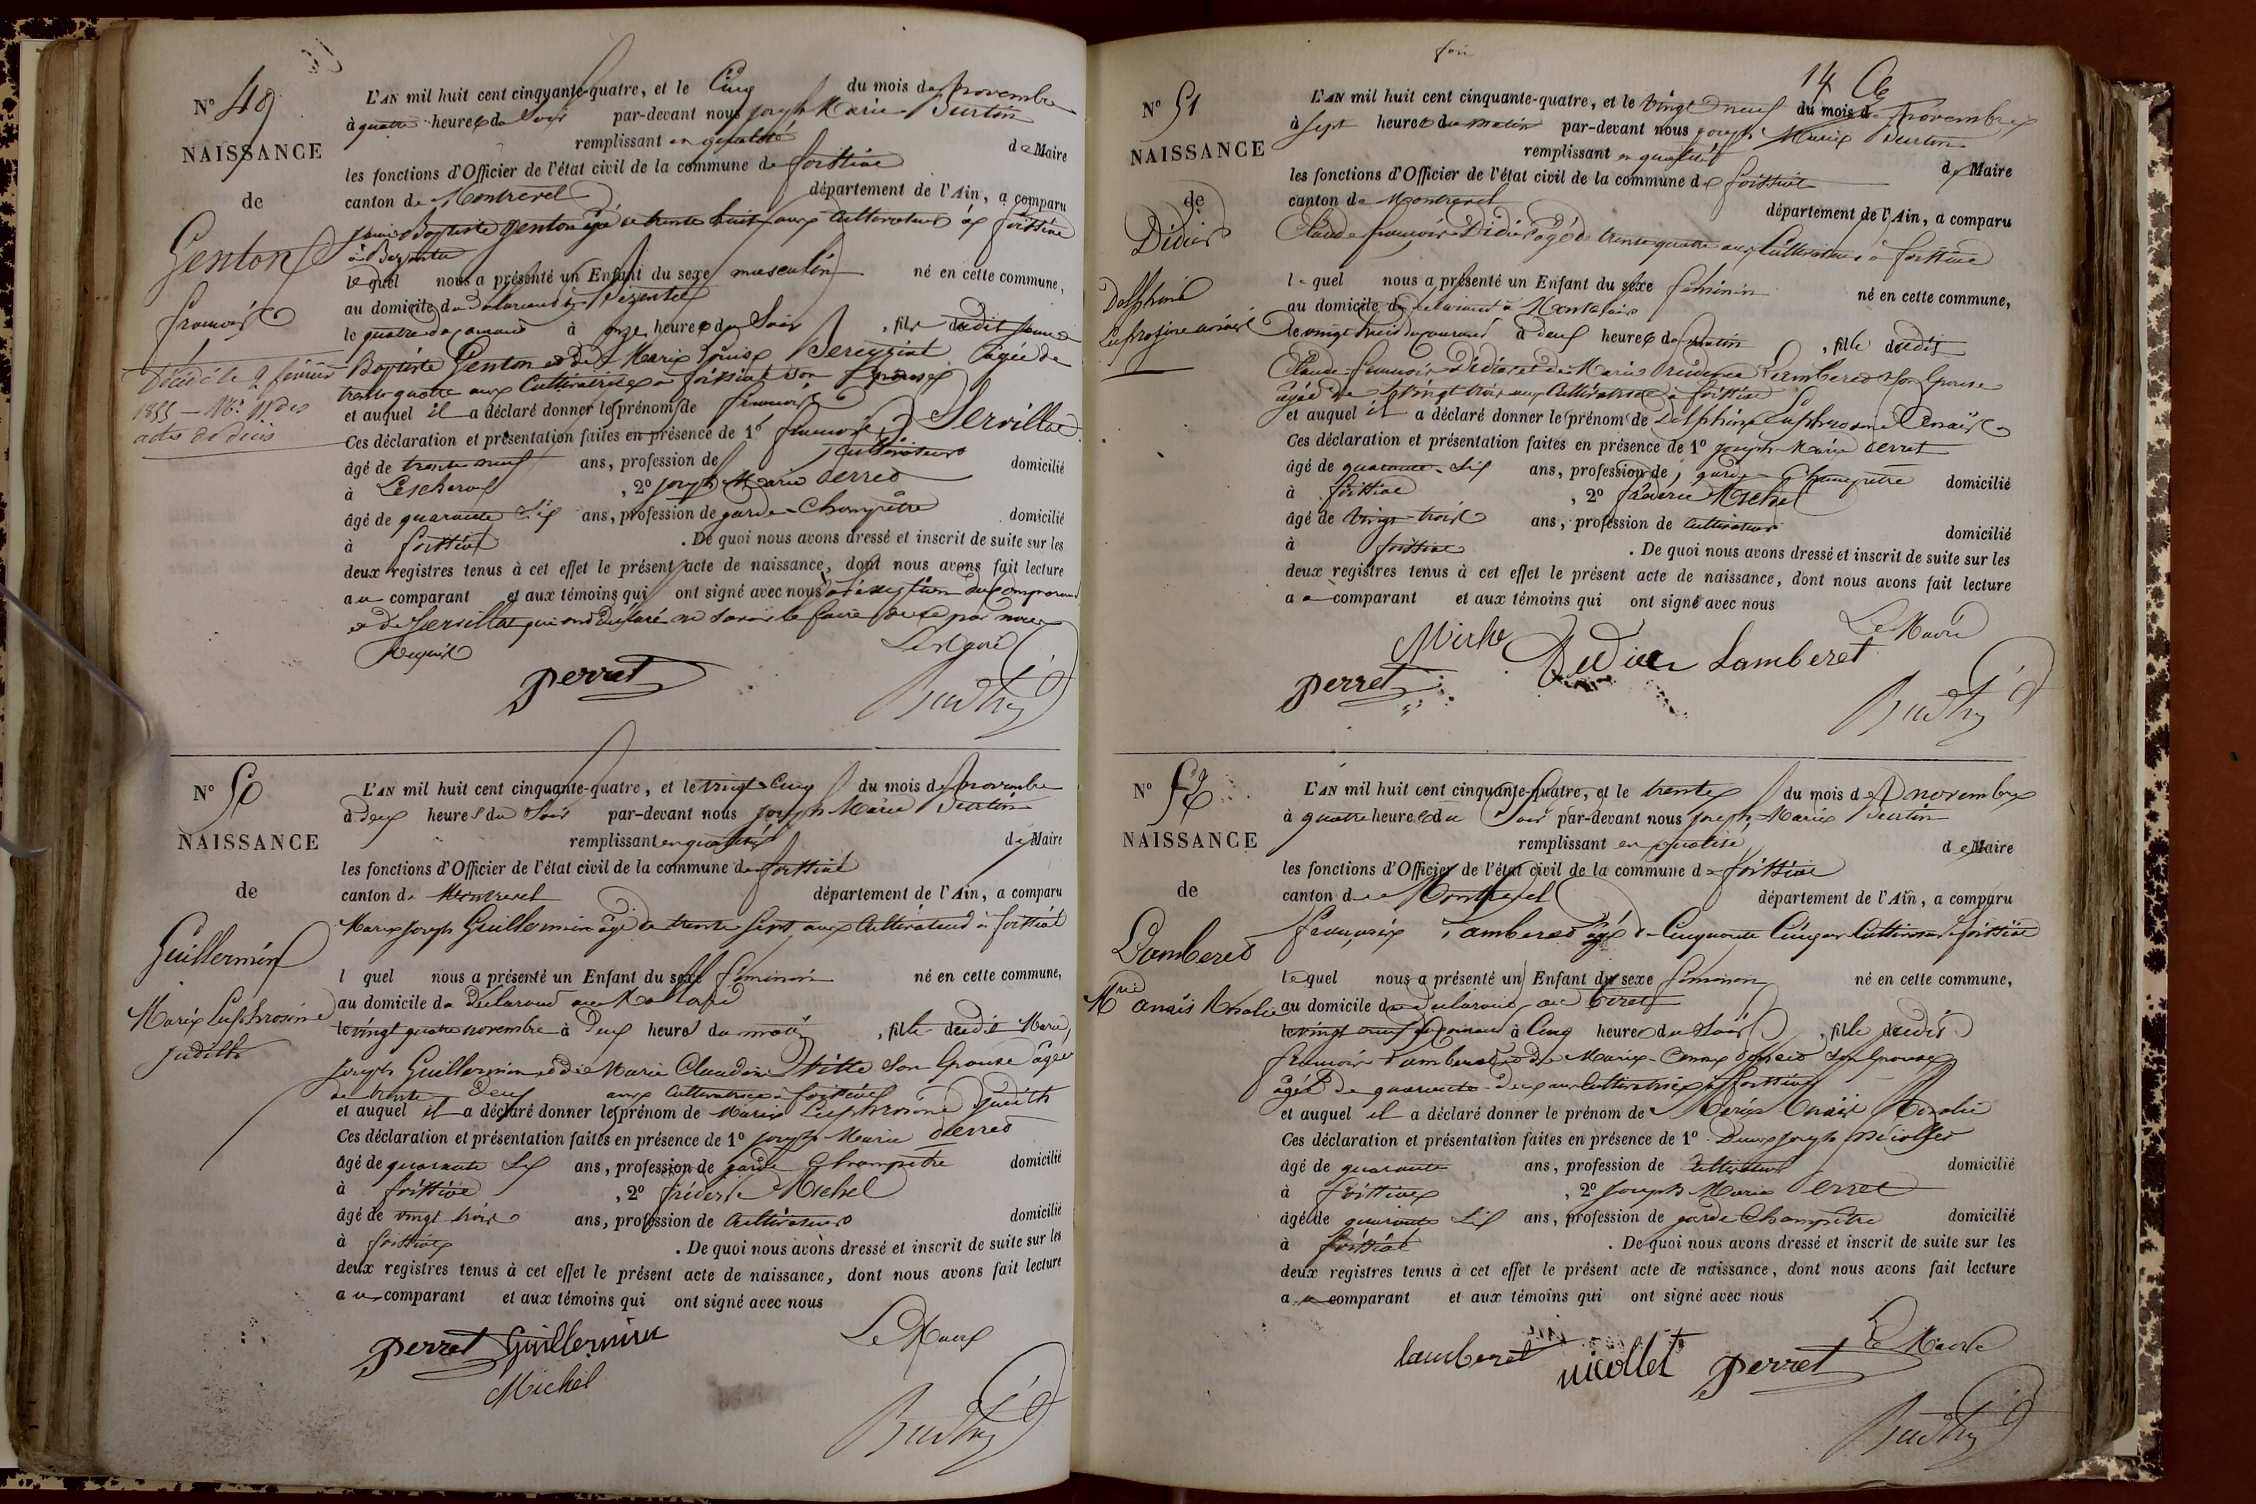 N° 49
NAISSANCE
de
Genton
françois
Décédé le 2 février
1855 — N° 11 des
actes de décès
L'AN mil huit cent cinquante-quatre, et le Cinq du mois de novembre
à quatre heures du soir par-devant nous joseph Marie Burtin
remplissant en qualité de Maire
les fonctions d'Officier de l'état civil de la commune de foissiat
canton de Montrevel département de l'Ain, a comparu
Baptiste Genton agé de trente huit ans Cultivateur à foissiat
lequel nous a présenté un Enfant du sexe masculin né en cette commune,
au domicile du déclarant
le quatre du courant à onze heures du Soir, fils dudit
Baptiste Genton et de Marie Louise Bereyziat agée de
trente quatre ans Cultivatrice à foissiat son Epouse
et auquel il a déclaré donner le prénom de françois
Ces déclaration et présentation faites en présence de 1° françois Servillat
âgé de trente neuf ans, profession de Cultivateur domicilié
à Lescheroux, 2° joseph Marie Perret
âgé de quarante Six ans, profession de garde Champêtre domicilié
à foissiat. De quoi nous avons dressé et inscrit de suite sur les
deux registres tenus à cet effet le présent acte de naissance, dont nous avons fait lecture
au comparant et aux témoins qui ont signé avec nous à l'exception du Comparant
et de Servillat qui ont déclaré ne savoir le faire de ce par nous
Requis
perret
N° 50
NAISSANCE
de
Guillermin
Marie Euphrosine
judith
L'AN mil huit cent cinquante-quatre, et le vingt Cinq du mois de novembre
à deux heures du Soir par-devant nous joseph Marie Burtin
remplissant en qualité de Maire
les fonctions d'Officier de l'état civil de la commune de foissiat
canton de Montrevel département de l'Ain, a comparu
Marie joseph Guillermin âgé de trente Sept ans Cultivateur à foissiat
l quel nous a présenté un Enfant du sexe féminin né en cette commune,
au domicile du Déclarant
le vingt quatre novembre à Deux heures du matin, fille dudit Marie
joseph Guillermin et de Marie Claudine Vitte Son Epouse agée
de trente Deux ans Cultivatrice à foissiat
et auquel il a déclaré donner le prénom de Marie Euphrosine Judith
Ces déclaration et présentation faites en présence de 1° joseph Marie Perret
âgé de quarante Six ans, profession de garde Champêtre domicilié
à foissiat, 2° fréderic Michel
âgé de vingt trois ans, profession de Cultivateur domicilié
à foissiat. De quoi nous avons dressé et inscrit de suite sur les
deux registres tenus à cet effet le présent acte de naissance, dont nous avons fait lecture
au comparant et aux témoins qui ont signé avec nous
Le Maire
perret Guillermin
Michel
14
N° 51
NAISSANCE
de
Didier
Delphine
Euphrosine anaïs
L'AN mil huit cent cinquante-quatre, et le Vingt neuf du mois de novembre
à Sept heures du matin par-devant nous joseph Marie Burtin
remplissant en qualité de Maire
les fonctions d'Officier de l'état civil de la commune de foissiat
canton de Montrevel département de l'Ain, a comparu
Claude françois Didier âgé de trente quatre ans Cultivateur à foissiat
l quel nous a présenté un Enfant du sexe féminin né en cette commune,
au domicile du déclarant à
le vingt huit du courant à deux heures du matin, fille dudit
Claude françois Didier et de Marie Prudence Lamberet Son Epouse
agée de vingt trois ans Cultivatrice à foissiat
et auquel il a déclaré donner le prénom de Delphine Euphrosine anaïs
Ces déclaration et présentation faites en présence de 1° joseph Marie Perret
âgé de quarante Six ans, profession de garde Champêtre domicilié
à foissiat, 2° fréderic Michel
âgé de Vingt trois ans, profession de Cultivateur domicilié
à foissiat. De quoi nous avons dressé et inscrit de suite sur les
deux registres tenus à cet effet le présent acte de naissance, dont nous avons fait lecture
au comparant et aux témoins qui ont signé avec nous
Le Maire
Didier Lamberet
perret
N° 52
NAISSANCE
de
Lamberet
Mie anaïs Rosalie
L'AN mil huit cent cinquante-quatre, et le trente du mois de novembre
à quatre heures du Soir par-devant nous joseph Marie Burtin
remplissant en qualité de Maire
les fonctions d'Officier de l'état civil de la commune de foissiat
canton de Montrevel département de l'Ain, a comparu
françois Lamberet âgé de Cinquante Cinq ans Cultivateur à foissiat
lequel nous a présenté un Enfant du sexe féminin né en cette commune,
au domicile du déclarant
le vingt neuf du courant à Cinq heures du Soir, fille dudit
françois Lamberet et de Marie Son Epouse
agée de quarante Deux ans Cultivatrice à foissiat
et auquel il a déclaré donner le prénom de Marie Anaïs Rosalie
Ces déclaration et présentation faites en présence de 1° joseph Nicollet
âgé de quarante ans, profession de Cultivateur domicilié
à foissiat, 2° joseph Marie Perret
âgé de quarante Six ans, profession de garde Champêtre domicilié
à foissiat. De quoi nous avons dressé et inscrit de suite sur les
deux registres tenus à cet effet le présent acte de naissance, dont nous avons fait lecture
au comparant et aux témoins qui ont signé avec nous
Le Maire
lamberet nicollet perret